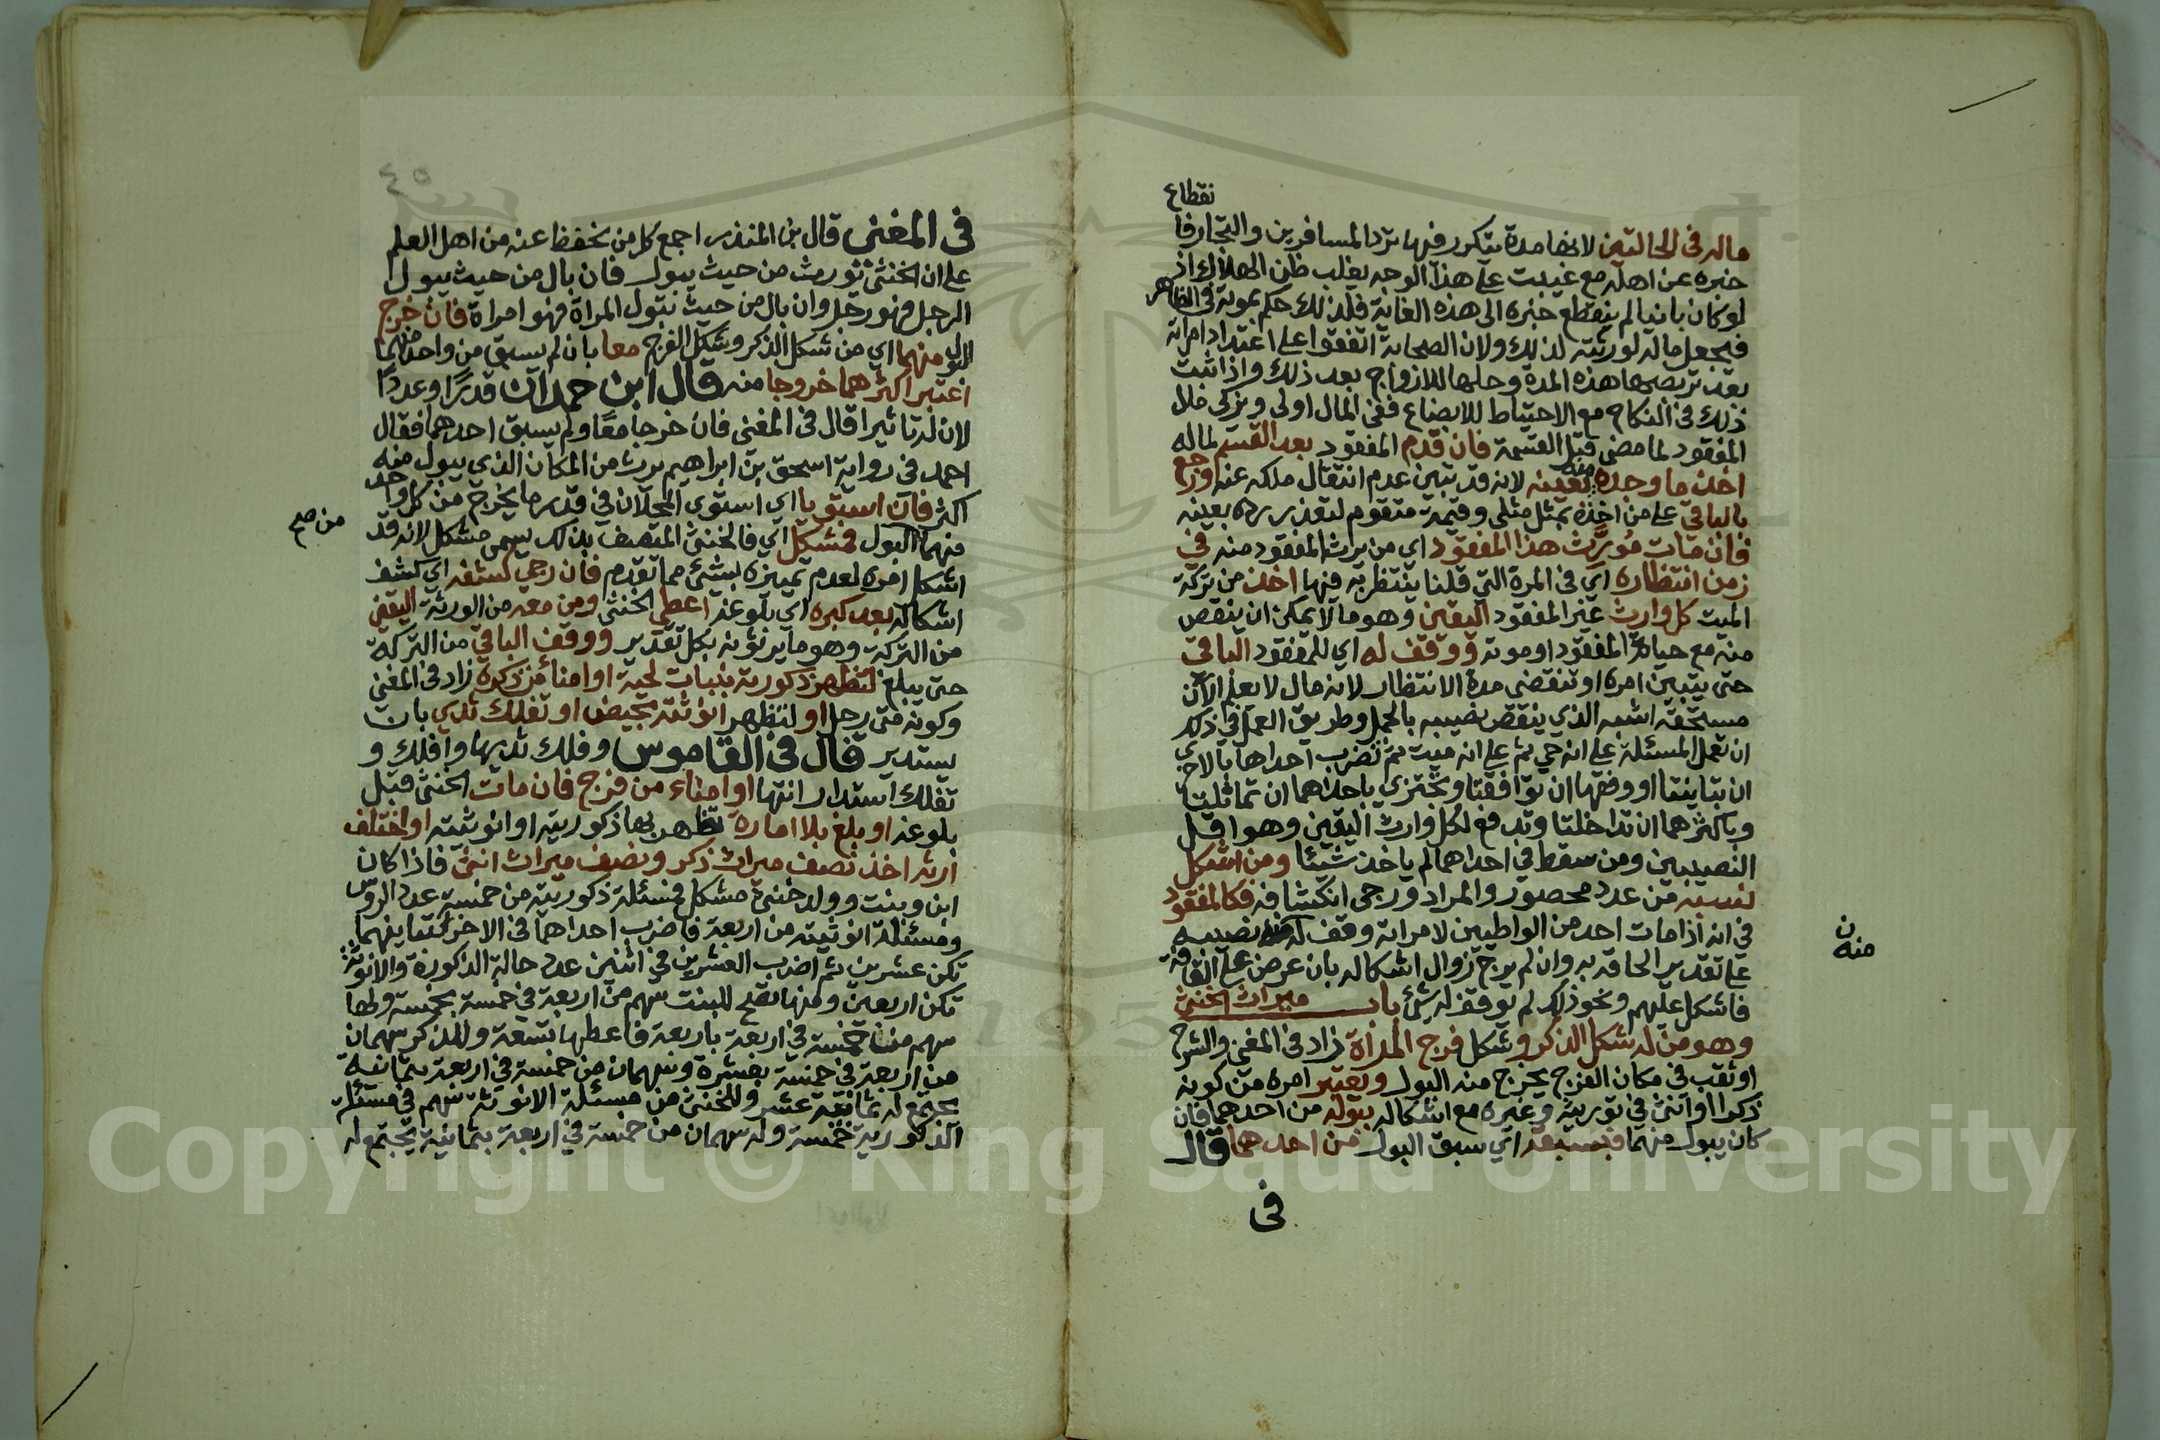 نقطاع
ماله في الحالتين لانها مدة يتكرر فيها تردد المسافرين والتجار فا
خبره عن اهله مع غيبته على هذا الوجه يغلب ظن الهلاك اذ
لو كان باقيا لم ينقطع خبره الى هذه الغاية فلذلك حكم بموته في الظاهر
فيجعل ماله لورثته لذلك ولان الصحابة اتفقوا على اعتداد امراته
بعد تربصها هذه المدة وحلها للازواج بعد ذلك واذا ثبت
ذلك في النكاح مع الاحتياط للابضاع ففي المال اولى ويزكى مال
المفقود لما مضى قبل القسمة فان قدم المفقود بعد القسم لماله
اخذ ما وجده منه بعينه لانه قد تبين عدم انتقال ملكه عنه ورجع
بالباقي على من اخذه بمثل مثلي وقيمة متقوم لتعذر رده بعينه
فان مات مورث هذا المفقود اي من يرث المفقود منه في
زمن انتظاره اي في المدة التي قلنا ينتظر به فيها اخذ من تركة
الميت كل وارث غير المفقود اليقين وهو ما لا يمكن ان ينقص
منه مع حياة المفقود او موته ووقف له اي للمفقود الباقي
حتى يتبين امره او تنقضي مدة الانتظار لانه مال لا يعلم الآن
مستحقه اشبه الذي ينقص نصيبه بالحمل وطريق العمل في ذلك
ان تعمل المسئلة على انه حي ثم على انه ميت ثم تضرب احداها بالاخرى
ان تباينتا او وفقها ان توافقتا وتجتزي باحداهما ان تماثلتا
وباكثرهما ان تداخلتا وتدفع لكل وارث اليقين وهو اقل
النصيبين ومن سقط في احداهما لم ياخذ شيئا ومن اشكل
نسبه من عدد محصور والمراد ورجي انكشافه فكالمفقود
في انه اذا مات احد من الواطيين لامراته وقف له نصيبه
ن منه
على تقدير الحاقه به وان لم يرج زوال اشكاله بان عرض على القافة
فاشكل عليهم ونحو ذلك لم يوقف له شئ باب ميراث الخنثى
وهو من له شكل الذكر وشكل فرج المرأة زاد في المغني والشرح
او ثقب في مكان الفرج يخرج منه البول ويعتبر امره من كونه
ذكرا او انثى في توريثه وغيره مع اشكاله ببوله من احدهما فان
كان يبول منهما فبسبقه اي سبق البول من احدهما قال
في
٤٥
في المغني قال بن المنذر اجمع كل من نحفظ عنه من اهل العلم
على ان الخنثى يورث من حيث يبول فان بال من حيث يبول
الرجل فهو رجل وان بال من حيث تبول المراة فهو امراة فان خرج
البول منهما اي من شكل الذكر وشكل الفرج معا بان لم يسبق من واحد منهما
اعتبر اكثرهما خروجا منه قال ابن حمدان قدرًا وعددًا
لان له تاثيرا قال في المغني فان خرجا معًا ولم يسبق احدهما فقال
احمد في رواية اسحق بن ابراهيم يرث من المكان الذي يبول منه
اكثر فان استويا اي استوى المحلان في قدر ما يخرج من كل واحد
منهما البول فمشكل اي فالخنثى المتصف بذلك يسمى مشكل لانه قد
من صح
اشكل امره لعدم تمييزه بشيئ مما تقدم فان رجي كشفه اي كشف
اشكاله بعد كبره اي بلوغه اعطي الخنثى ومن معه من الورثة اليقين
من التركة وهو ما يرثونه بكل تقدير ووقف الباقي من التركة
حتى يبلغ لتظهر ذكوريته بنبات لحية او امناء من ذكره زاد في المغني
وكونه منى رجل او لتظهر انوثته بحيض او تفلك ثدي بان
يستدير قال في القاموس وفلك ثديها وافلك و
تفلك استدار انتها او امناء من فرج فان مات الخنثى قبل
بلوغه او بلغ بلا امارة تظهر بها ذكوريته او انوثيته او اختلف
ارثه اخذ نصف ميراث ذكر ونصف ميراث انثى فاذا كان
ابن وبنت وولد خنثى مشكل فمسئلة ذكوريته من خمسة عدد الروس
ومسئلة انوثيته من اربعة فاضرب احداهما في الاخرى لتباينهما
تكن عشرين ثم اضرب العشرين في اثنين عدد حالة الذكورة والانوثة
تكن اربعين ومنها تصح للبنت سهم من اربعة في خمسة بخمسة ولها
سهم من خمسة في اربعة باربعة فاعطها تسعة وللذكر سهمان
من اربعة في خمسة بعشرة وسهمان من خمسة في اربعة بثمانية
يجتمع له ثمانية عشر وللخنثى من مسئلة الانوثة سهم في مسئلة
الذكورية خمسة وله سهمان من خمسة في اربعة بثمانية يجتمع له
Copyright © King Saud University